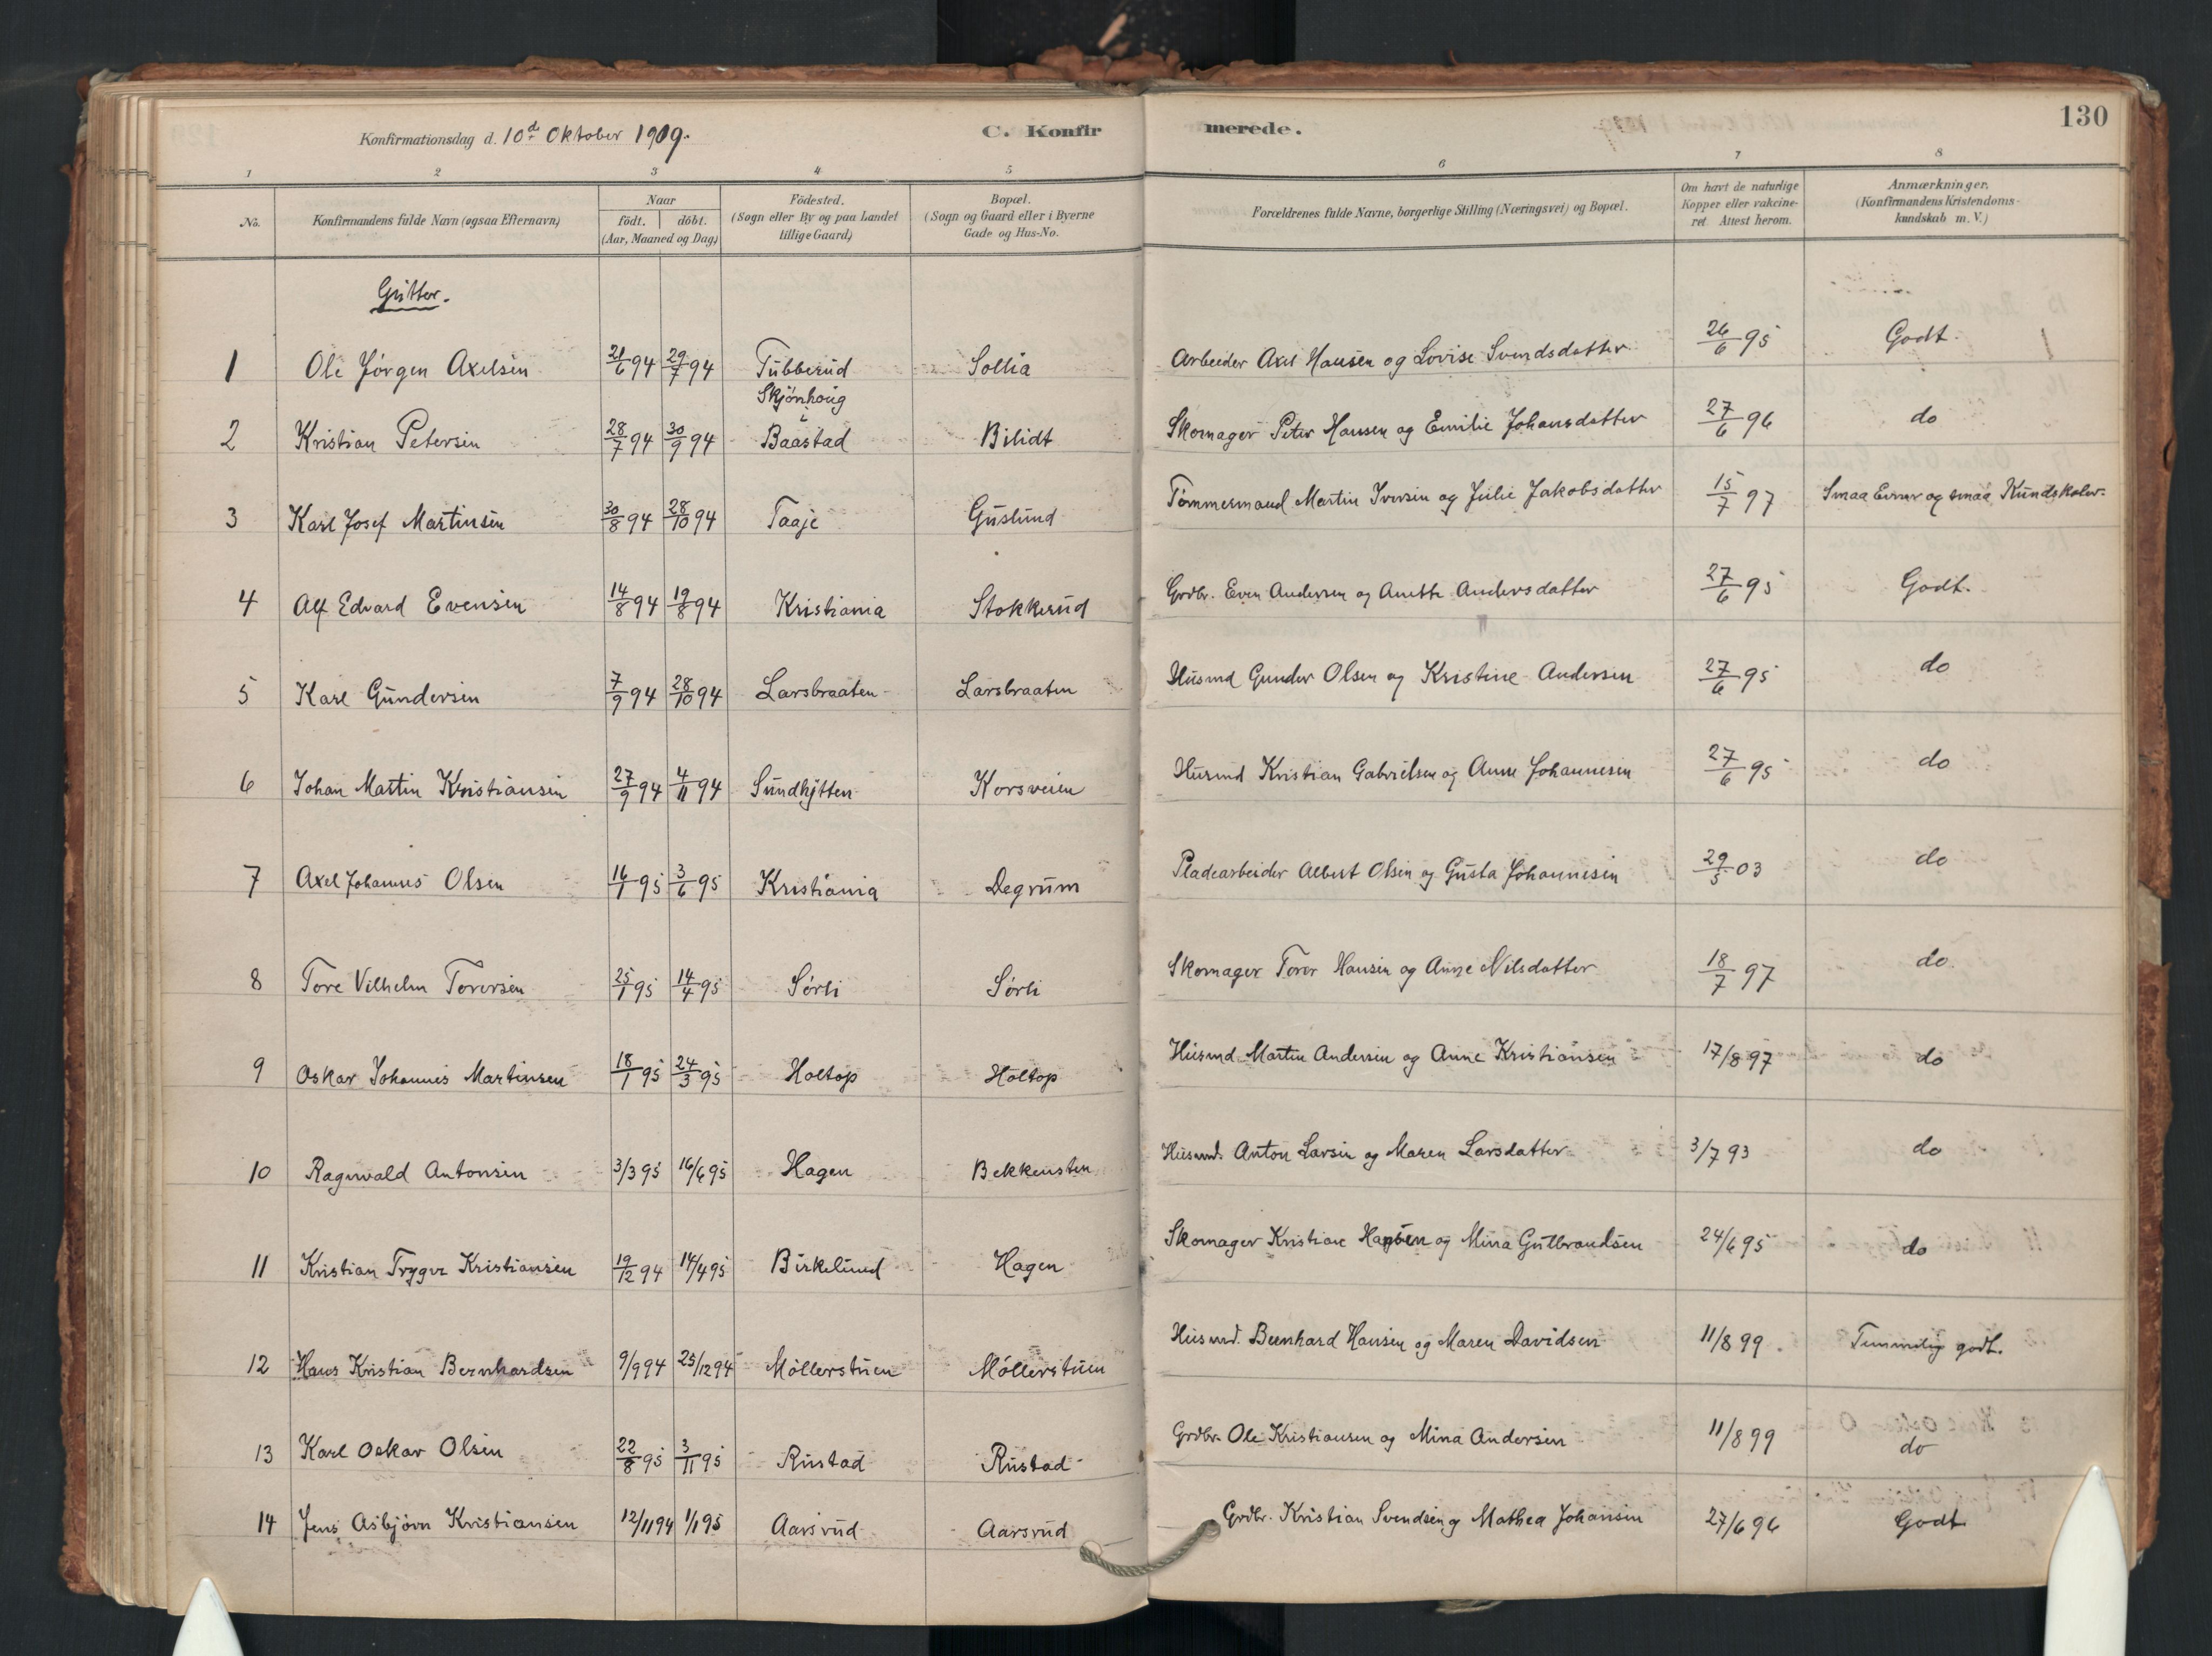 130
Konfirmationsdag d. 10d Oktober 1909.
C. Konfirmerede.
1 2 3 4 5 6 7 8
No. Konfirmandens fulde Navn (ogsaa Efternavn) Naar födt. döbt. (Aar, Maaned og Dag) Födested. (Sogn eller By og paa Landet tillige Gaard) Bopæl. (Sogn og Gaard eller i Byerne Gade og Hus-No. Forældrenes fulde Navne, borgerlige Stilling (Næringsvei) og Bopæl. Om havt de naturlige Kopper eller vakcineret Attest herom. Anmærkninger. (Konfirmandens Kristendomskundskab m. V.)
Gutter.
1 Ole Jörgen Axelsen 21/6 94 29/7 94 Tubberud Sollia Arbeider Axel Hansen og Lovise Svendsdatter 26/6 95 Godt.
2 Kristian Petersen 28/7 94 30/9 94 Skjönhaug i Baastad Bilidt Skomager Peter Hansen og Emilie Johansdatter 27/6 96 do
3 Karl Josef Martinsen 30/8 94 28/10 94 Taaje Guslund Tömmermand Martin Iversen og Julie Jakobsdatter 15/7 97 Smaa Evner og smaa Kundskaber.
4 Alf Edvard Evensen 14/8 94 19/8 94 Kristiania Stokkerud Grdbr. Even Andersen og Anette Andersdatter 27/6 95 Godt.
5 Karl Gundersen 7/9 94 28/10 94 Larsbraaten Larsbraaten Husmd Gunder Olsen og Kristine Andersen 27/6 95 do
6 Johan Martin Kristiansen 27/9 94 4/11 94 Sundhytten Korsveien Husmd Kristian Gabrielsen og Anne Johannesen 27/6 95 do
7 Axel Johannes Olsen 16/1 95 3/6 95 Kristiania Degrum Pladearbeider Albert Olsen og Gusta Johannesen 29/5 03 do
8 Tore Vilhelm Torersen 25/1 95 14/4 95 Sörli Sörli Skomager Torer Hansen og Anne Nilsdatter 18/7 97 do.
9 Oskar Johannes Martinsen 18/1 95 24/3 95 Holtop Holtop Husmd. Martin Andersen og Anne Kristiansen 17/8 97 do
10 Ragnvald Antonsen 3/3 95 16/6 95 Hagen Bekkensten Husmd. Anton Larsen og Maren Larsdatter 3/7 93 do
11 Kristian Trygve Kristiansen 19/12 94 14/4 95 Birkelund Hagen Skomager Kristian Hansen og Mina Gulbrandsen 24/6 95 do
12 Hans Kristian Bernhardsen 9/9 94 25/12 94 Möllerstuen Möllerstuen Husmd. Bernhard Hansen og Maren Davidsen 11/8 99. Temmelig godt.
13 Karl Oskar Olsen 22/8 95 3/11 95 Rustad Rustad Grdbr. Ole Kristiansen og Mina Andersen 11/8 99 do
14 Jens Asbjörn Kristiansen 12/11 94 1/1 95 Aarsrud Aarsrud Grdbr. Kristian Svendsen og Mathea Johansen 27/6 96 Godt